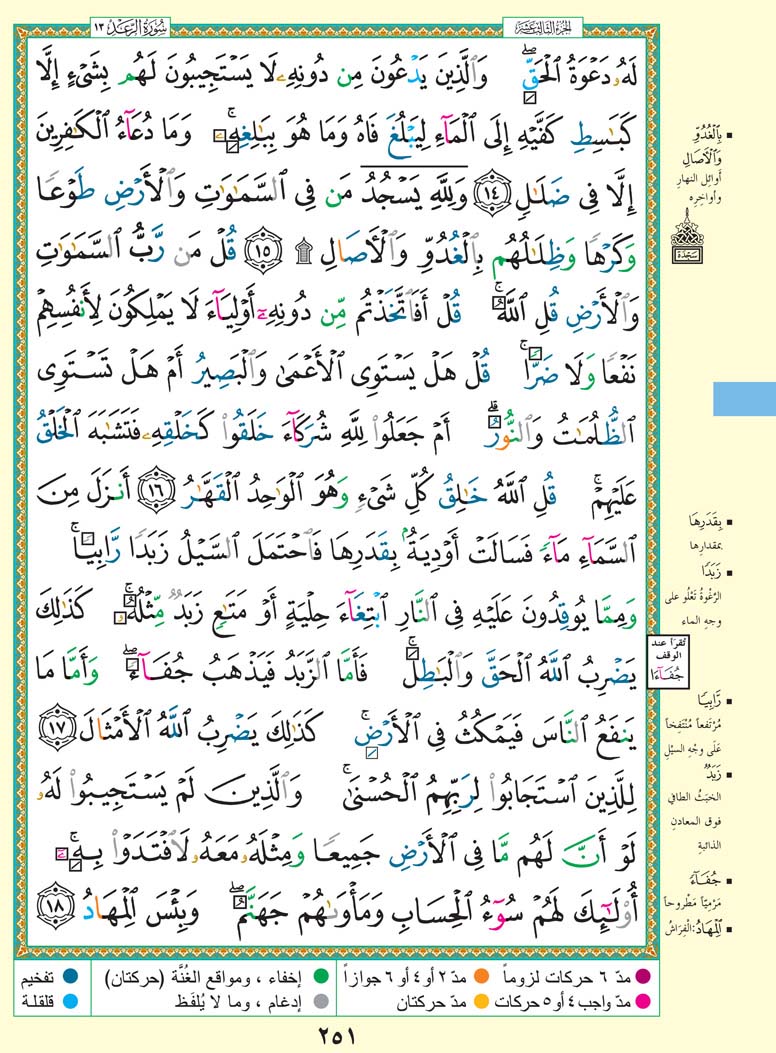 سُورَةُ الرَّعْدِ ١٣
الجُزْءُ الثَّالِثَ عَشَرَ
لَهُۥ دَعْوَةُ ٱلْحَقِّ ۖ وَٱلَّذِينَ يَدْعُونَ مِن دُونِهِۦ لَا يَسْتَجِيبُونَ لَهُم بِشَىْءٍ إِلَّا
كَبَـٰسِطِ كَفَّيْهِ إِلَى ٱلْمَآءِ لِيَبْلُغَ فَاهُ وَمَا هُوَ بِبَـٰلِغِهِۦ ۚ وَمَا دُعَآءُ ٱلْكَـٰفِرِينَ
إِلَّا فِى ضَلَـٰلٍ ١٤ وَلِلَّهِ يَسْجُدُ مَن فِى ٱلسَّمَـٰوَٰتِ وَٱلْأَرْضِ طَوْعًا
وَكَرْهًا وَظِلَـٰلُهُم بِٱلْغُدُوِّ وَٱلْـَٔاصَالِ ۩ ١٥ قُلْ مَن رَّبُّ ٱلسَّمَـٰوَٰتِ
وَٱلْأَرْضِ قُلِ ٱللَّهُ ۚ قُلْ أَفَٱتَّخَذْتُم مِّن دُونِهِۦٓ أَوْلِيَآءَ لَا يَمْلِكُونَ لِأَنفُسِهِمْ
نَفْعًا وَلَا ضَرًّا ۚ قُلْ هَلْ يَسْتَوِى ٱلْأَعْمَىٰ وَٱلْبَصِيرُ أَمْ هَلْ تَسْتَوِى
ٱلظُّلُمَـٰتُ وَٱلنُّورُ ۗ أَمْ جَعَلُوا۟ لِلَّهِ شُرَكَآءَ خَلَقُوا۟ كَخَلْقِهِۦ فَتَشَـٰبَهَ ٱلْخَلْقُ
عَلَيْهِمْ ۚ قُلِ ٱللَّهُ خَـٰلِقُ كُلِّ شَىْءٍ وَهُوَ ٱلْوَٰحِدُ ٱلْقَهَّـٰرُ ١٦ أَنزَلَ مِنَ
ٱلسَّمَآءِ مَآءً فَسَالَتْ أَوْدِيَةٌۢ بِقَدَرِهَا فَٱحْتَمَلَ ٱلسَّيْلُ زَبَدًا رَّابِيًا ۚ
وَمِمَّا يُوقِدُونَ عَلَيْهِ فِى ٱلنَّارِ ٱبْتِغَآءَ حِلْيَةٍ أَوْ مَتَـٰعٍ زَبَدٌ مِّثْلُهُۥ ۚ كَذَٰلِكَ
يَضْرِبُ ٱللَّهُ ٱلْحَقَّ وَٱلْبَـٰطِلَ ۚ فَأَمَّا ٱلزَّبَدُ فَيَذْهَبُ جُفَآءً ۖ وَأَمَّا مَا
يَنفَعُ ٱلنَّاسَ فَيَمْكُثُ فِى ٱلْأَرْضِ ۚ كَذَٰلِكَ يَضْرِبُ ٱللَّهُ ٱلْأَمْثَالَ ١٧
لِلَّذِينَ ٱسْتَجَابُوا۟ لِرَبِّهِمُ ٱلْحُسْنَىٰ ۚ وَٱلَّذِينَ لَمْ يَسْتَجِيبُوا۟ لَهُۥ
لَوْ أَنَّ لَهُم مَّا فِى ٱلْأَرْضِ جَمِيعًا وَمِثْلَهُۥ مَعَهُۥ لَٱفْتَدَوْا۟ بِهِۦٓ ۚ
أُو۟لَـٰٓئِكَ لَهُمْ سُوٓءُ ٱلْحِسَابِ وَمَأْوَىٰهُمْ جَهَنَّمُ ۖ وَبِئْسَ ٱلْمِهَادُ ١٨
▪ بِٱلْغُدُوِّ
وَٱلْـَٔاصَالِ
أوائِل النهارِ
وأواخِرِه
سَجْدَة
▪ بِقَدَرِهَا
بمقدارِها
▪ زَبَدًا
الرَّغْوةُ تَعْلُو على
وجهِ الماء
تُقرأ عند
الوقف
جُفَآءَا
▪ رَّابِيًا
مُرْتَفعاً مُنْتَفِخاً
عَلَى وجْهِ السيْلِ
▪ زَبَدٌ
الخبَثُ الطافي
فوق المعادنِ
الذائبةِ
▪ جُفَآءً
مَرْمِيّاً مَطْروحاً
▪ ٱلْمِهَادُ: الْفِرَاشُ
مدّ ٦ حركات لزوماً
مدّ ٢ أو ٤ أو ٦ جوازاً
إخفاء ، ومواقع الغُنَّة (حركتان)
تفخيم
مدّ واجب ٤ أو ٥ حركات
مدّ حركتان
إدغام ، وما لا يُلفَظ
قلقلة
٢٥١